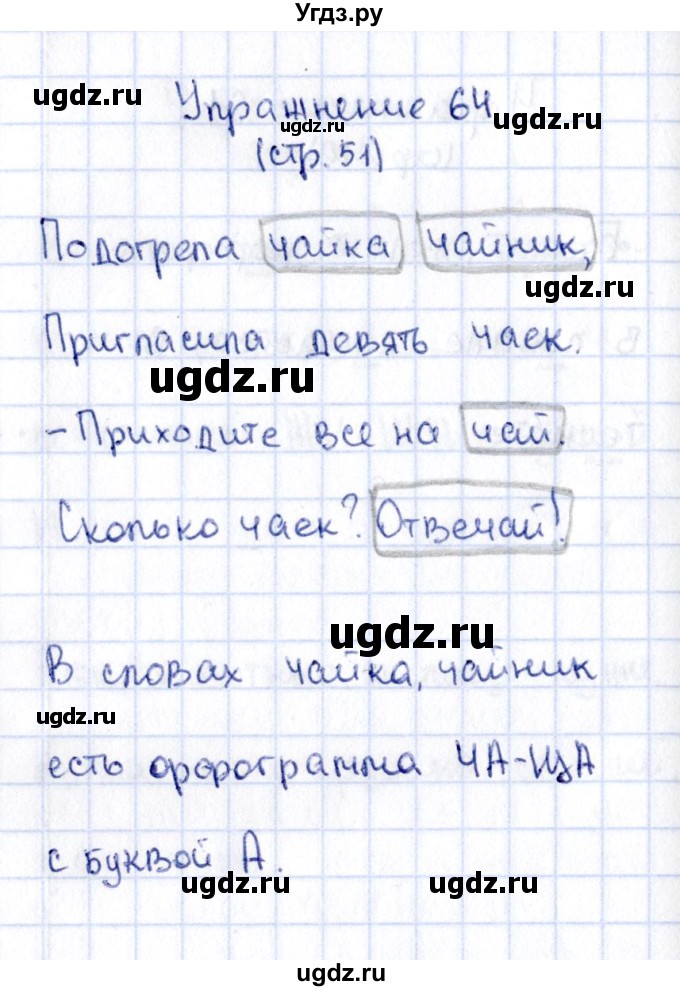 Угдз.ру
ugdz.ru
Упражнение 64
ugdz.ru
ugdz.ru
(стр. 51)
Подогрела чайка чайник,
ugdz.ru
Пригласила девять чаек.
ugdz.ru
- Приходите все на чай
Сколько чаек? Отвечай!
ugdz.ru
В словах чайка, чайник
ugdz.ru
есть орфограмма ЧА-ЩА
с буквой А.
ugdz.ru ugdz.ru
ugdz.ru